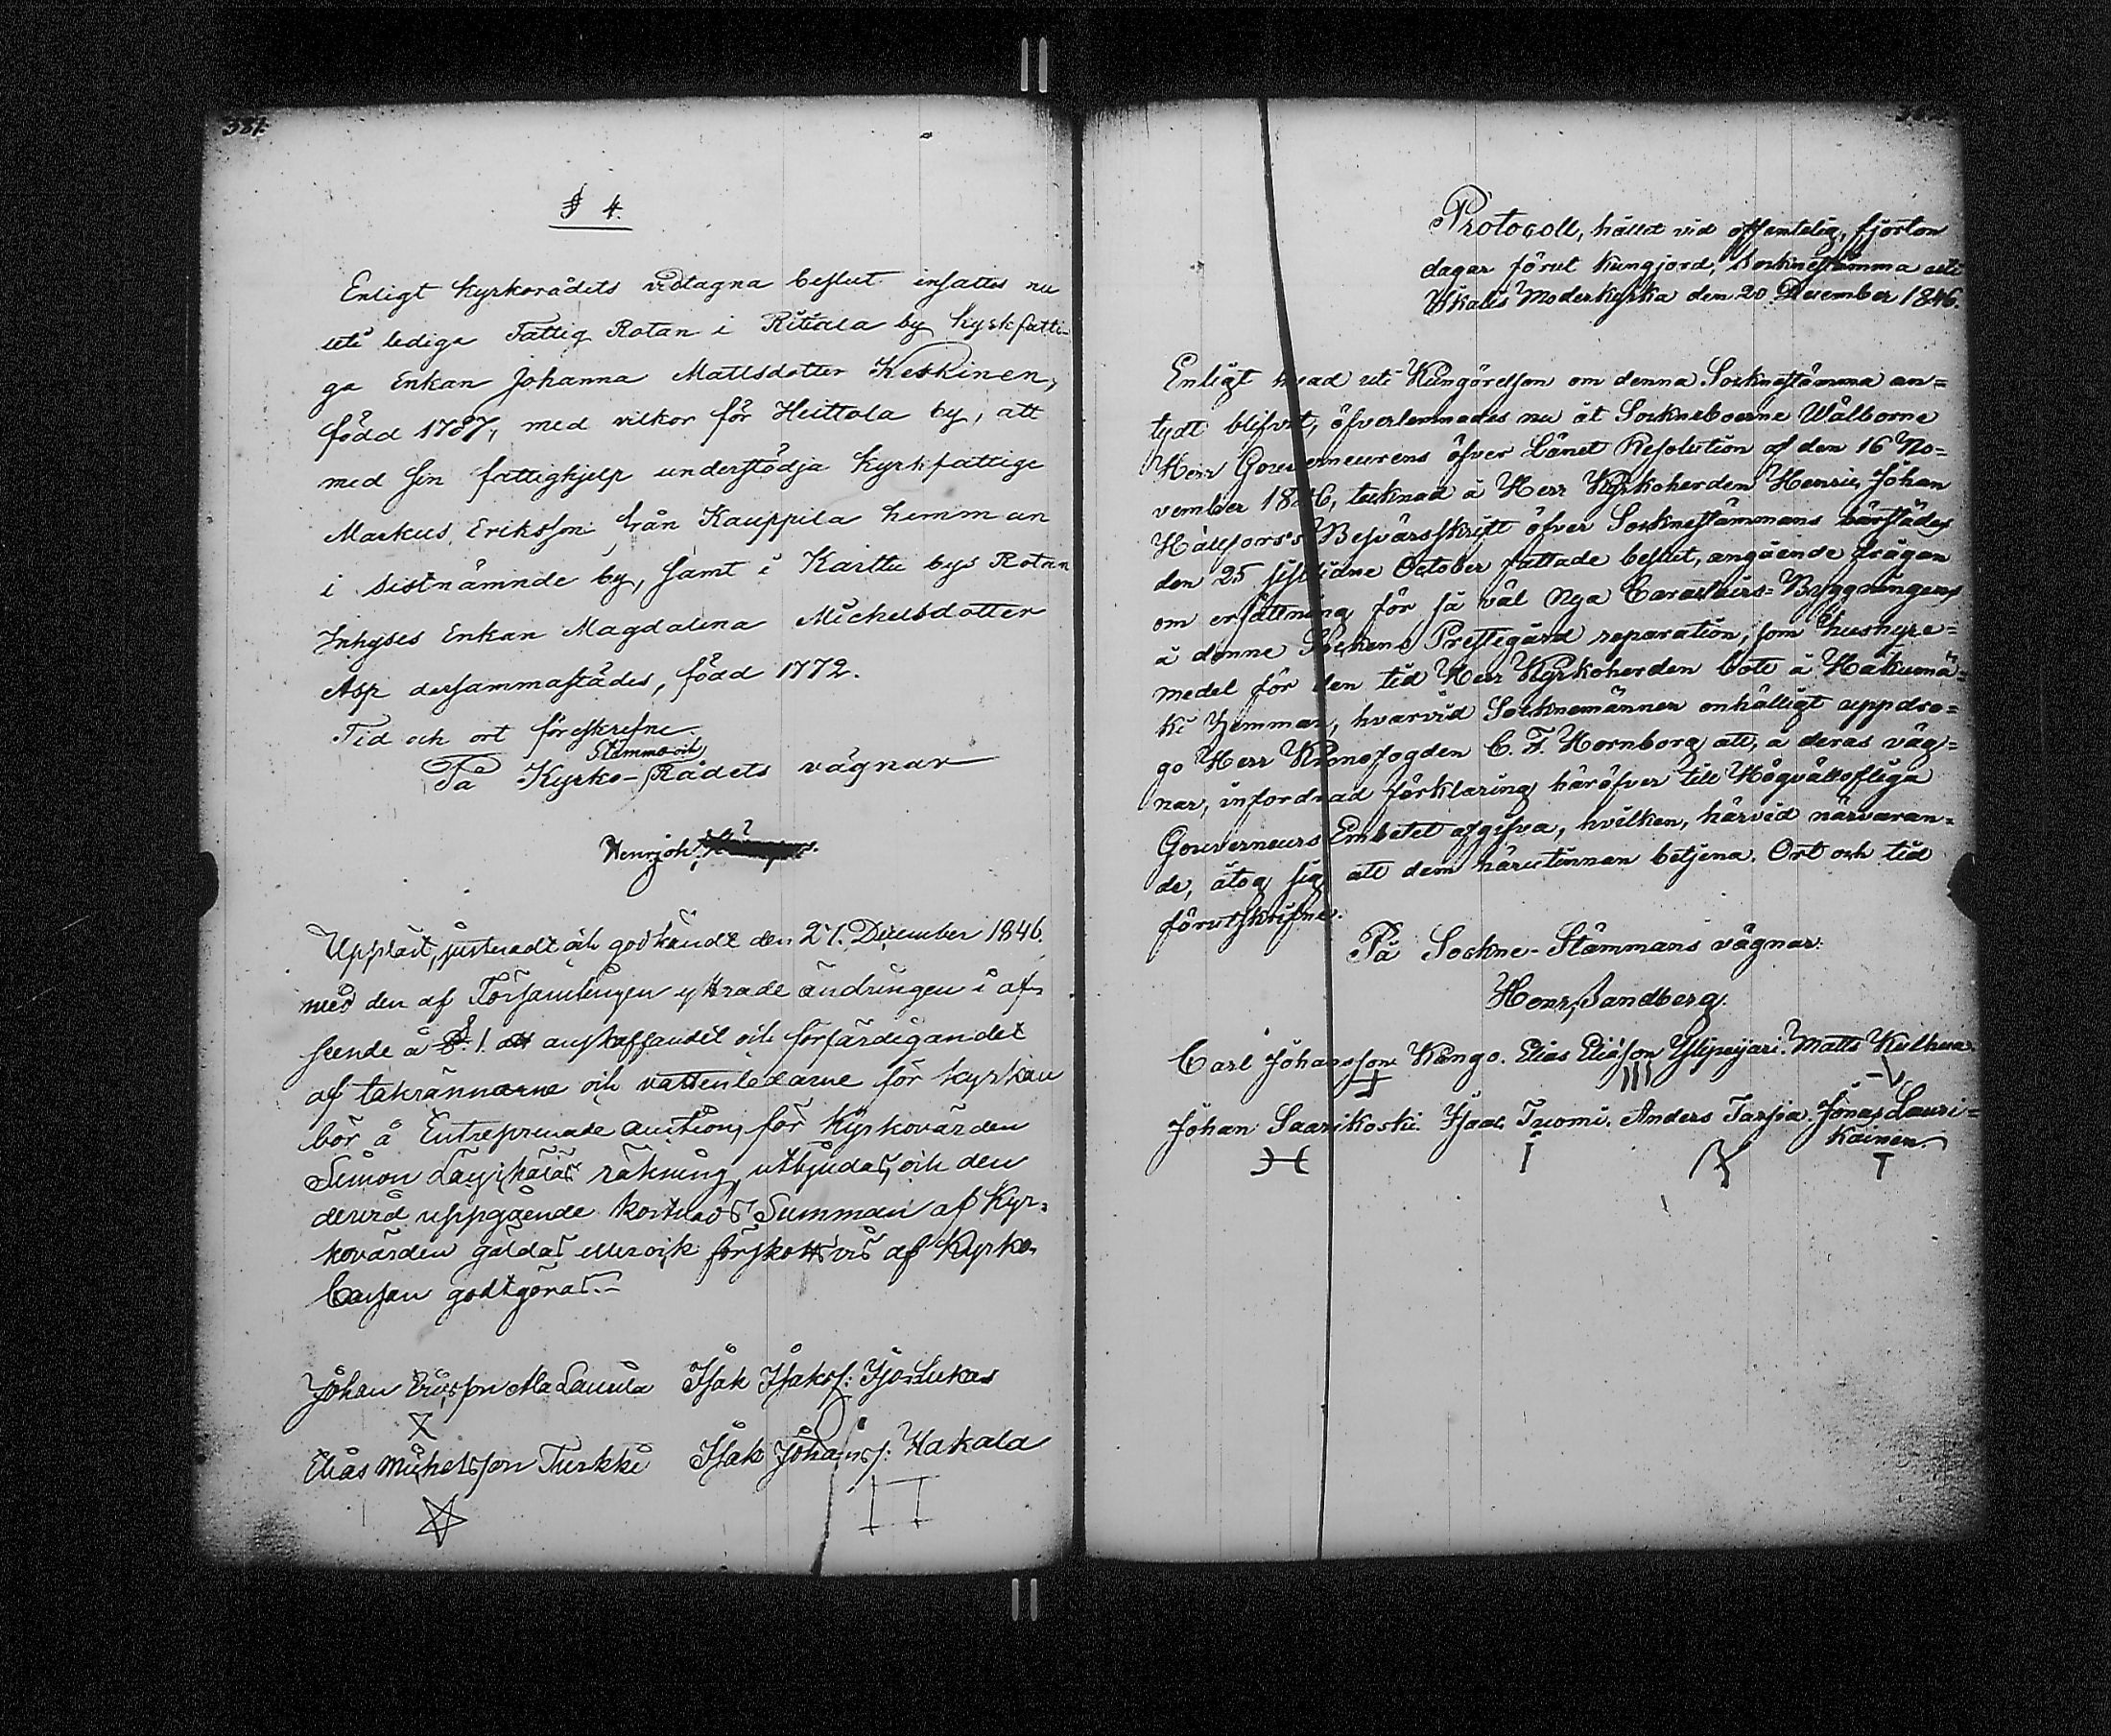 387.
§ 4.
Enligt Kyrkorådets vidtagna beslut insattes nu
uti lediga Fattig Rotan i Ritiala by kyrkfatti-
ga Enkan Johanna Mattsdotter Keskinen,
född 1787, med vilkor för Heittola by, att
med sin fattighjelp understödja kyrkfattige
Markus Eriksson från Kauppila hemman
i sistnämnde by, samt i Karttu bys Rotan
Inhyses Enkan Magdalena Michelsdotter
Asp dersammastädes, född 1772.
Tid och ort föreskrefne.
Stämmo och
På Kyrko-Rådets vägnar
Henr Joh:
Uppläst, justeradt och godkändt den 27. December 1846.
med den af Församlingen yttrade ändringen i af-
seende å §. 1. att anskaffandet och förfärdigandet
af takrännorne och vattenledarne för kyrkan
bör å Entreprenade auction, för Kyrkovärden
Simon räkning, utbjudas, och den
dervid uppgående kostnads Summan af Kyr-
kovärden gäldas förskottsvis af Kyrko-
Cassan godtgöras.-
Johan Ericsson Ala Lauula Isak Isakss: Yso Lukas
Elias Michelsson Turkki Isak Johanss: Hakala
Protocoll, hållit vid offentelig, fjorton
dagar förut kungjord, Socknestämma uti
Ulfkalis Moderkyrka den 20 December 1846.
Enligt hvad uti Kungörelsen om denna Socknestämma an=
tydt blifvit, öfverlemnades nu åt Sockneboerne Wälborne
Herr Gouverneurens öfver Länet Resolution af den 16 No=
vember 1846, tecknad å Herr Kyrkoherden Henric Johan
Hällfors's Besvärsskrift öfver Socknestämmans härstädes
den 25 sistlidne October fattade beslut, angående frågan
om ersättning för så väl Nya Caracters=Byggningens
å denne Sockens Prestegård reparation, som hushyre=
medel för den tid Herr Kyrkoherden bott å Hakumä=
ki hemman, hvarvid Socknemännen enhälligt uppdro=
go Herr Kronofogden C. F. Hornborg att, å deras väg=
nar, infordrad förklaring häröfver till Högvällofliga
Gouverneurs Embetet afgifva, hvilken, härvid närvaran=
de, åtog sig att dem härutinnan betjena. Ort och tid
förutskrifne.
På Sockne-Stämmans vägnar:
Henr. Sandberg.
Carl Johansson Kango. Elias Eliasson Ylipeijari. Matts Kulhua.
Johan Saarikoski. Isaac Tuomi. Anders Tarpia. Jonas Lauri=
kainen.